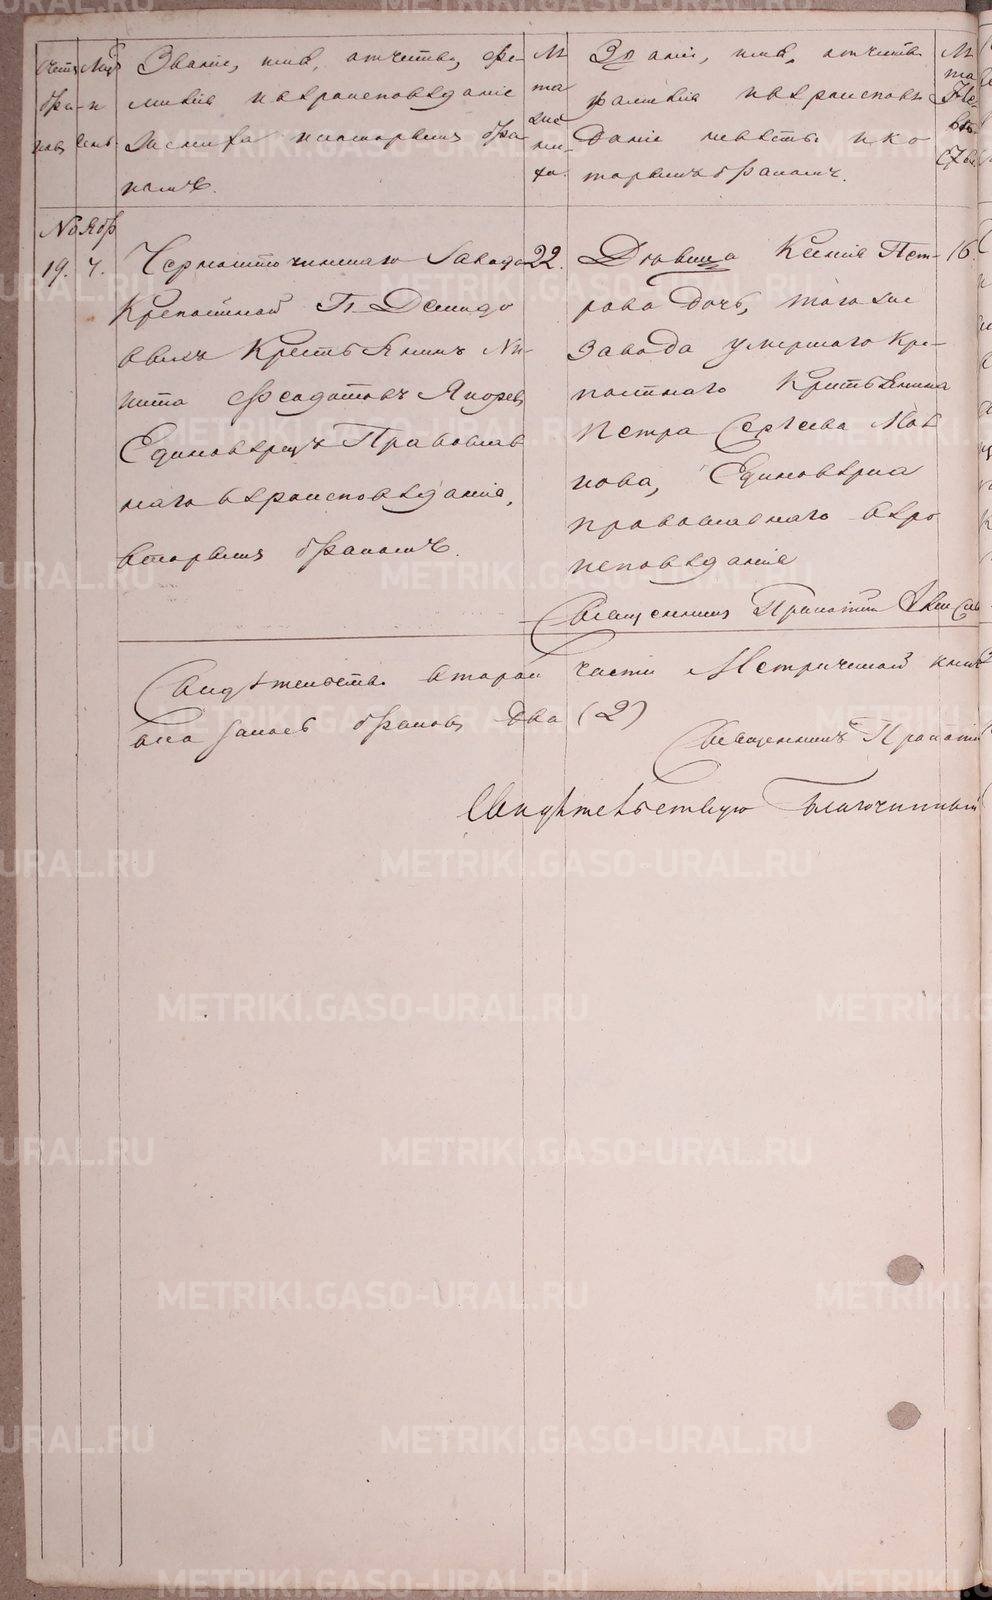 Счетъ
бра-
ковъ
Мцъ
и
день.
Званіе, имя, отчество, фа-
миліа и вѣроисповѣданіе
жениха и которымъ бра
комъ.
Лѣ
та
же
ни-
ха.
Званіе, имя, отчеств
фамиліа и вѣроисповѣ
даніе невѣсты и ко
торымъ бракомъ.
Лѣ
та
Не-
вѣ-
сты
Ноябр
19. 4. Черноисточинскаго Завода 22.
Крепостной Гг. Демидо
выхъ Крестьянинъ Ни-
кита Ѳедотовъ Яндрев
Единоверецъ Православ
наго вѣроисповѣданіа,
вторымъ бракомъ.
Дѣвица Ксенія Пет- 16.
рова дочь, того же
завода умершаго Кре-
постнаго Крестьянина
Петра Сергѣева
нова, Единоверка
православнаго вѣро
исповѣданіа
Священникъ Прокопій
Свидѣтельство. второй части Метрической книг
бна записъ браковъ Два (2)
Священникъ Прокопій
Свидѣтельствую Благочинный
METRIKI.GASO-URAL.RU